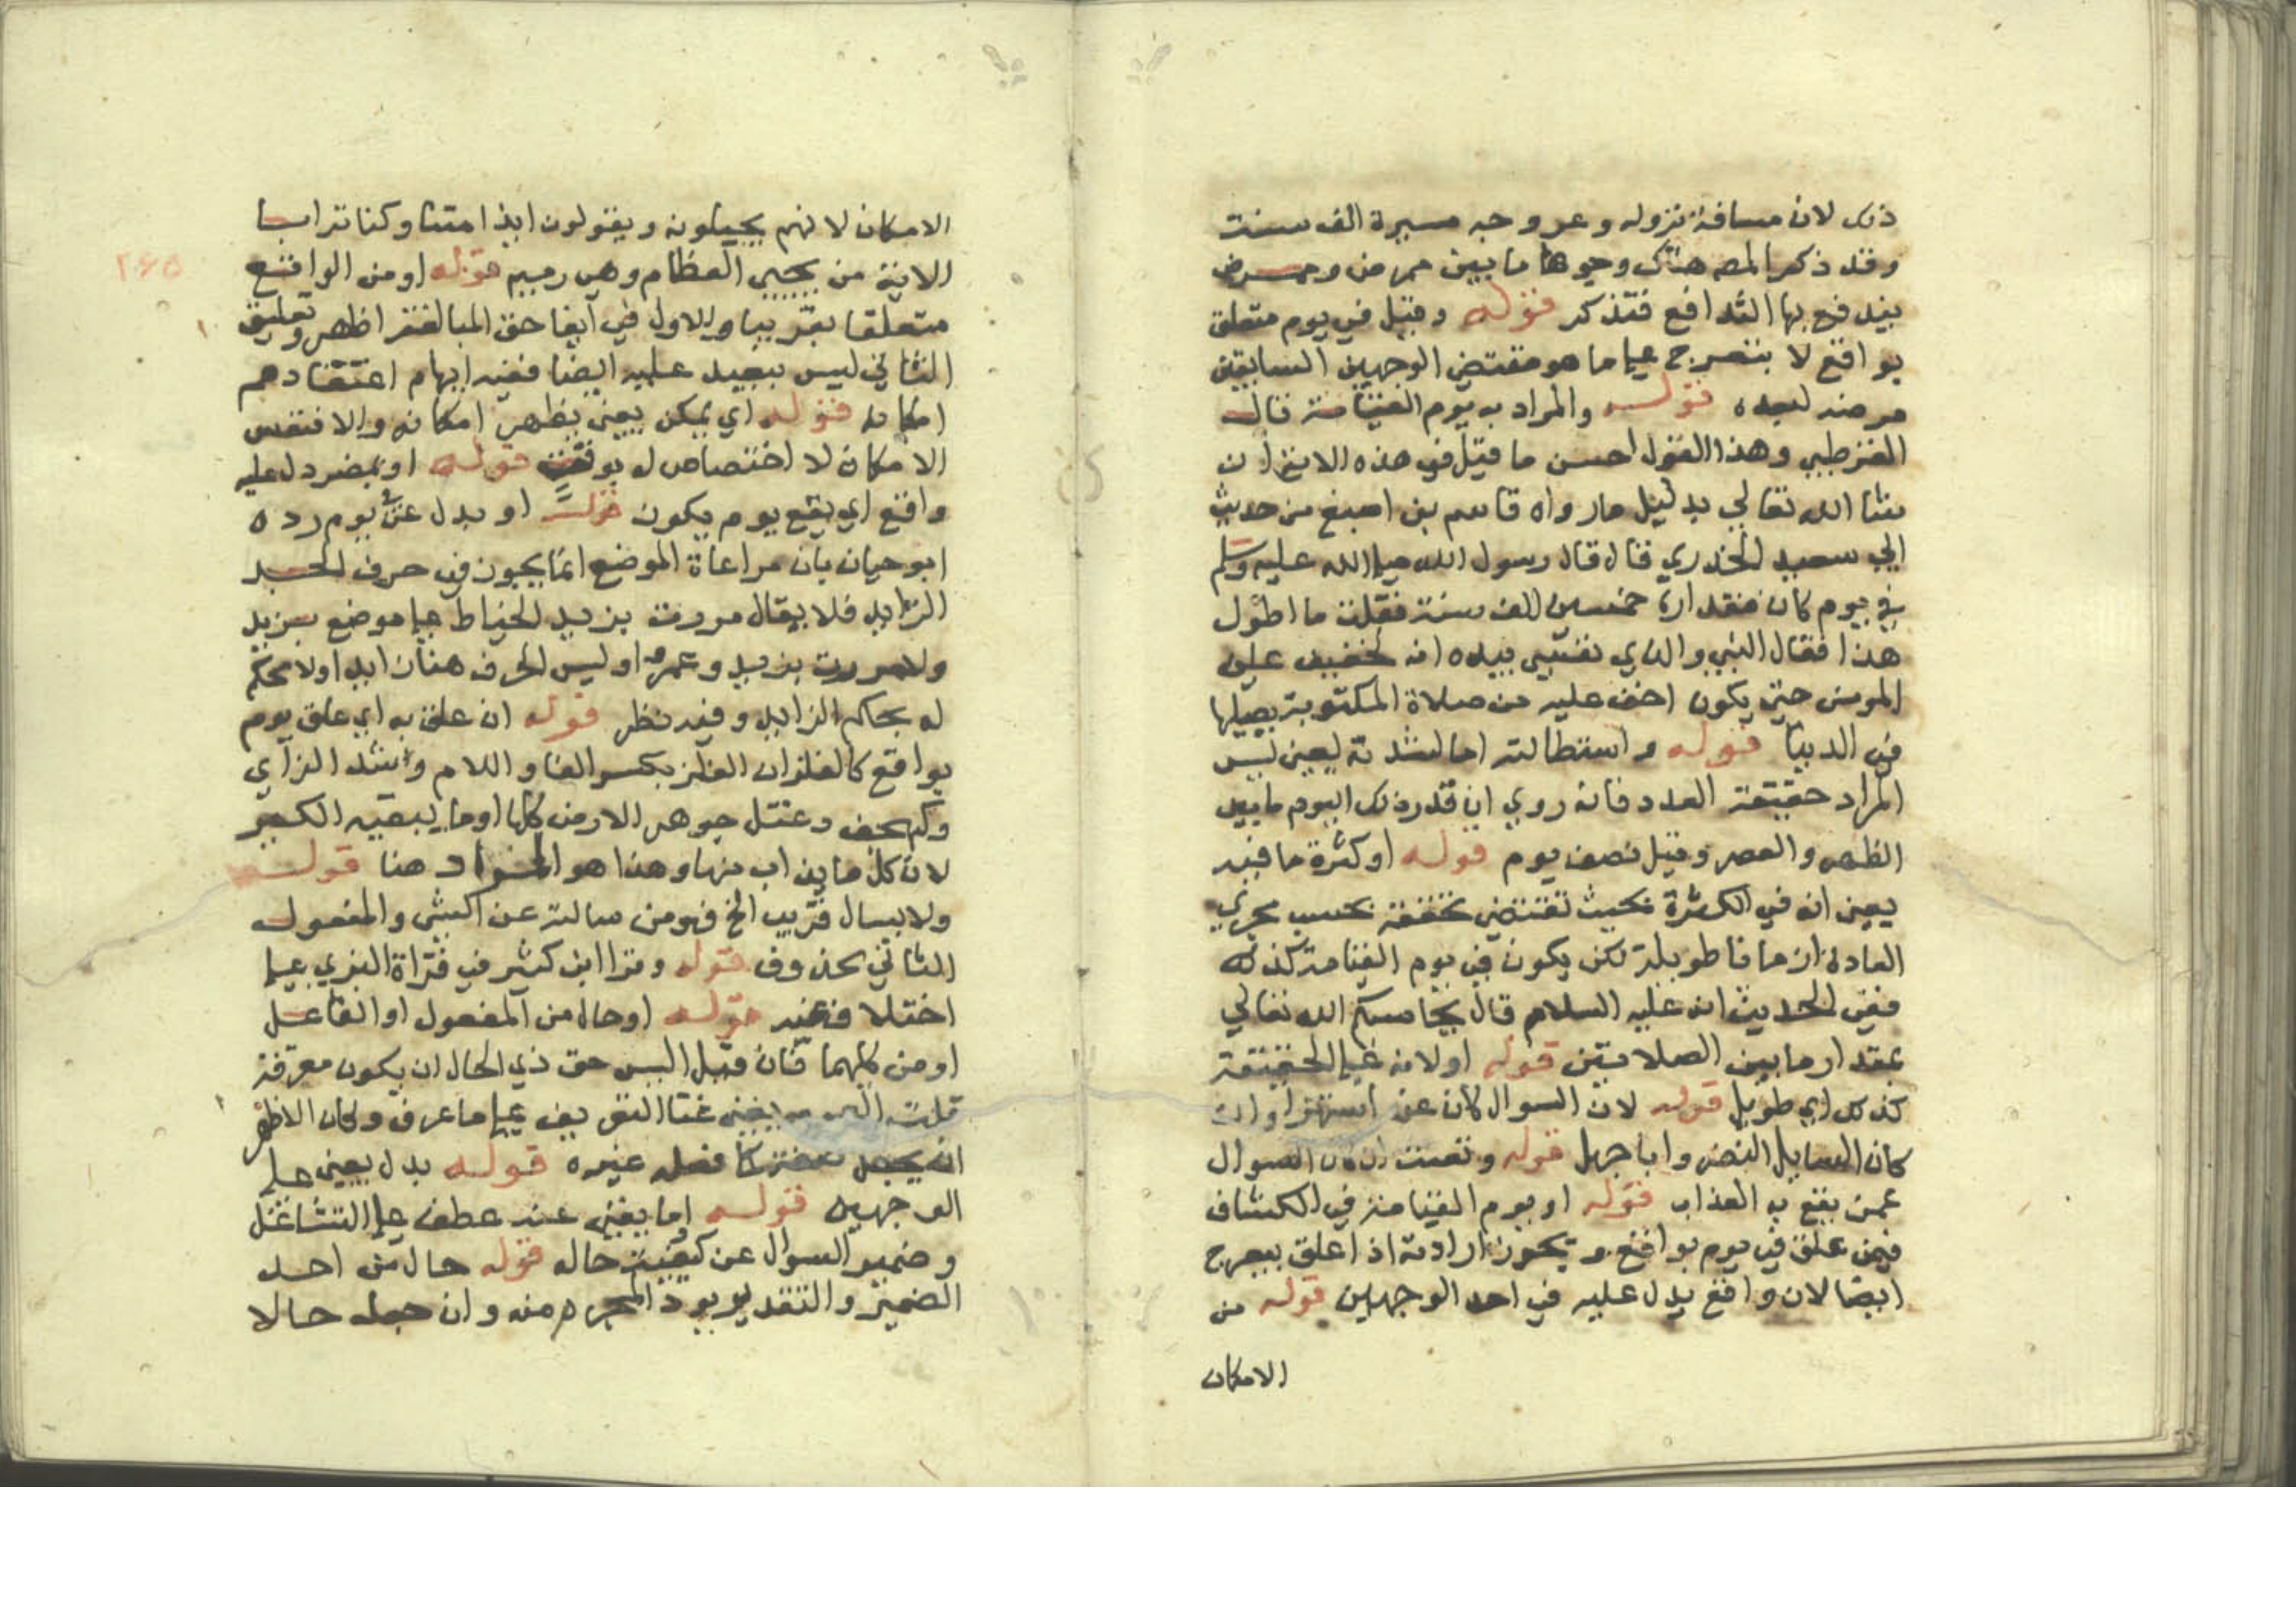 ذلك لان مسافة نزوله وعروجه مسيرة الف سنة
وقد ذكر المص هناك وجوها ما بين مرض ومرض
يندفع بها التدافع فتذكر قوله وقيل في يوم متعلق
بواقع لا بتعرج على ما هو مقتضى الوجهين السابقين
مرضه لبعده قوله والمراد به يوم القيامة قال
القرطبي وهذا القول احسن ما قيل في هذه الاية ان
شا الله تعالى بدليل ما رواه قاسم بن اصبغ من حديث
ابي سعيد الخدري قال قال رسول الله صلى الله عليه وسلم
في يوم كان مقداره خمسين الف سنة فقلت ما اطول
هذا فقال النبي والذي نفسي بيده انه ليخفيف على
المومن حتى يكون اخف عليه من صلاة المكتوبة يصليها
في الدنيا قوله واستطالته اما لشدته يعني ليس
المراد حقيقة العدد فانه روي ان قدر ذلك اليوم ما بين
الظهر والعصر وقيل نصف يوم قوله او كثرة ما فيه
يعني انه في الكثرة بحيث تقتضي بحسب مجري
العادة ازمانا طويلة لكن يكون في يوم القيامة كذلك
ففي الحديث انه عليه السلام قال يحاسبكم الله تعالى
بمقدار ما بين الصلاتين قوله او لانه على الحقيقة
كذلك اي طويل قوله لان السوال كان عن استهزا وان
كان السايل النضر وابا جهل قوله وتعنت ان كان السوال
عمن يقع به العذاب قوله او يوم القيامة في الكشاف
فيمن علق في يوم بواقع ويجوز ارادته اذا علق بيعرج
ايضا لان واقع يدل عليه في احد الوجهين قوله من
الامكان
الامكان لانهم يحيلونه ويقولون ايذا متنا وكنا ترابا
الاية من يحيي العظام وهي رميم قوله او من الواقع
٢٦٥
متعلقا بقريبا والاول في ايفا حق المبالغة اظهر وتعليق
الثاني ليس ببعيد عليه ايضا ففيه ابهام اعتقادهم
امكانه قوله اي يمكن يعني يظهر امكانه والا فنفس
الامكان لا اختصاص له بوقت قوله او بمضمر دل عليه
واقع اي يقع يوم يكون قوله او بدل عن يوم رده
ابو حيان بان مراعاة الموضع انما يجوز في حرف الجر
الزايد فلا يقال مررت بزيد الخياط على موضع بزيد
ولا مررت بزيد وعمرا وليس الحرف هنا زايدا ولا محكم
له بحكم الزايد وفيه نظر قوله ان علق به اي علق يوم
بواقع كالفلزات الفلز بكسر الفا واللام وشد الزاي
وكهجف وعتل جوهر الارض كلها او ما يبقيه الكير
لان كل ما يذاب منها وهذا هو المراد هنا قوله
ولا يسال قريب الخ فهو من سالته عن الشي والمفعول
الثاني محذوف قوله وقرا ابن كثير في قراة البزي على
اختلاف عنه قوله او حال من المفعول او الفاعل
او من كليهما فان قيل اليس حق ذي الحال ان يكون معرفة
قلت عنا التعريف على ما عرف وكان الاظهر
ان يجعل كما فعله غيره قوله بدل يعني على
الوجهين قوله او ما يغني عنه عطف على التشاغل
وضمير السوال عن كيفية حاله قوله حال من احد
الضمير والتقدير يود المجرم منه وان جعله حالا